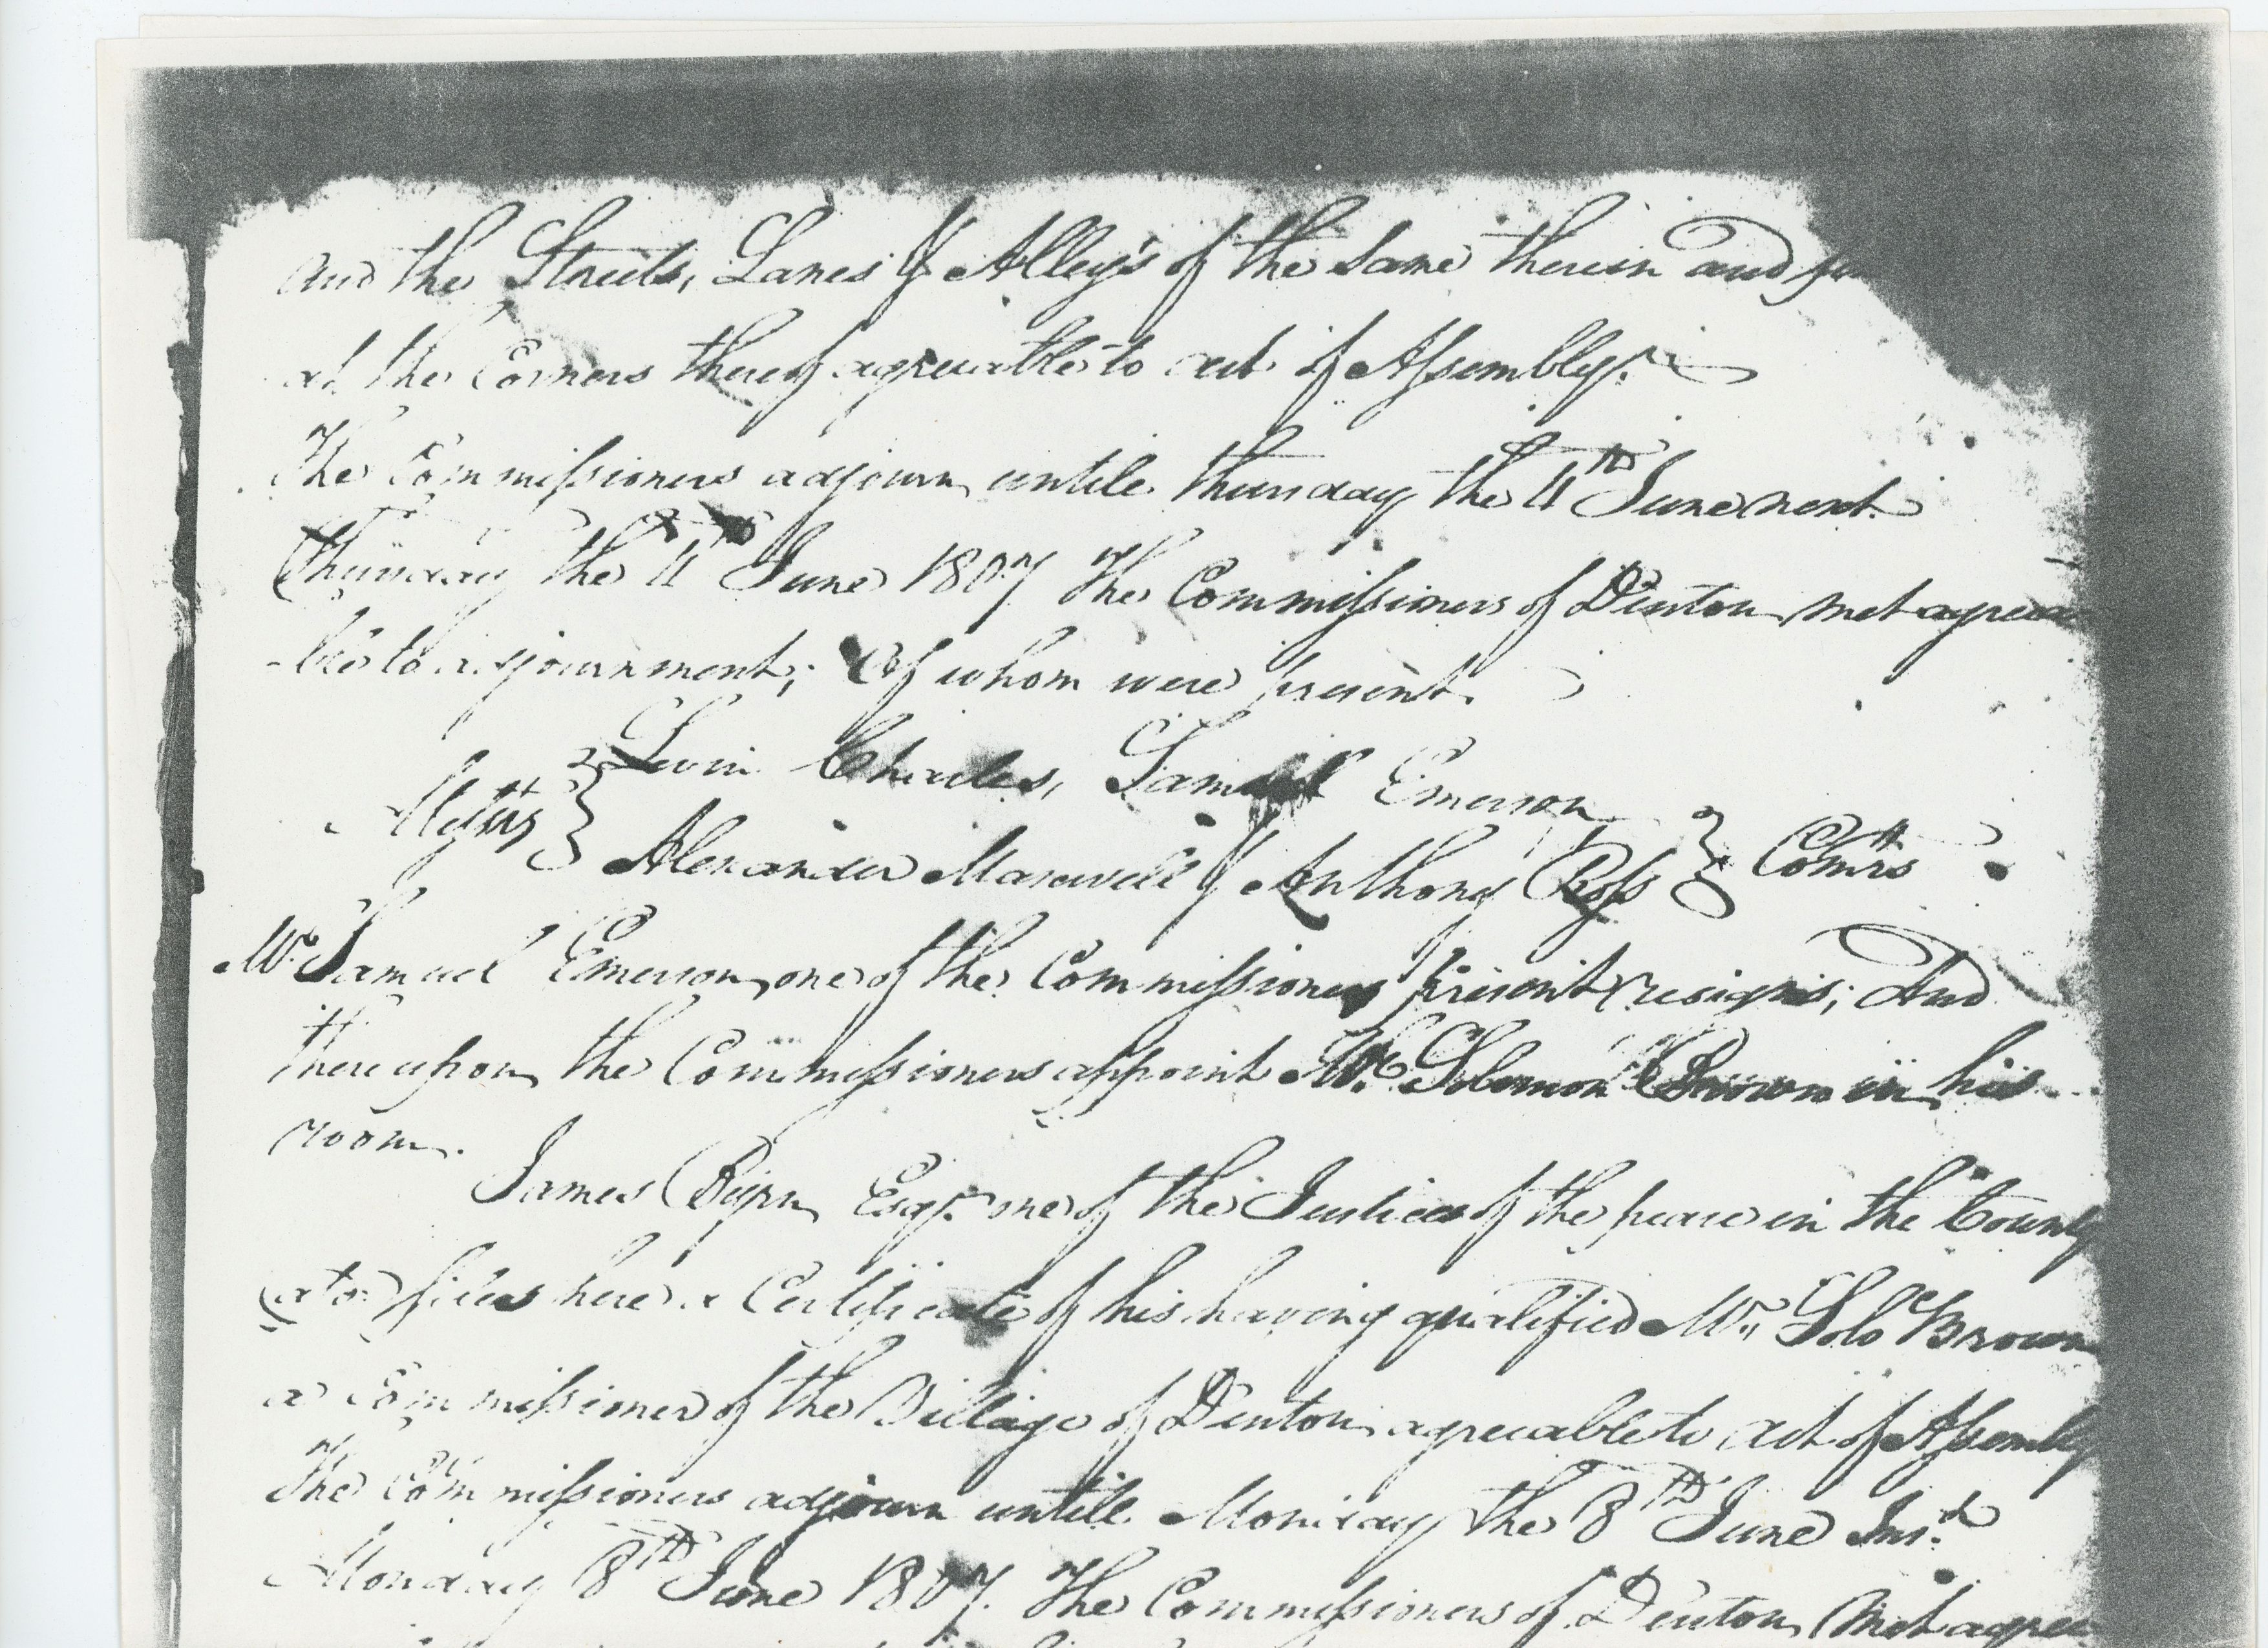 and the Streets, Lanes & Alley's of the Same therein and
at the Corners thereof agreeable to act of Assembly.
The Commissioners adjourn untile thursday the 4th June next.
Thursday the 4th June 1807 The Commissioners of Denton met agreea
-ble to adjournment; Of whom were present
Levin Charles, Samuel Emerson
Messrs } Alexander Maxwell & Anthony Ross } Comrs
Mr. Samuel Emerson, one of the Commissioners present resigns; And
thereupon the Commissioners appoint Mr. Solomon Brown in his
room.
James Bijrn Esqr. one of the Justices of the peace in the County
files here a Certificate of his having qualified Mr. Solo Brown
a Commissioner of the Village of Denton agreeable to act of Assembly
The Commissioners adjourn untill Monday the 8th June Inst.
Monday 8th June 1807. The Commissioners of Denton Met agree